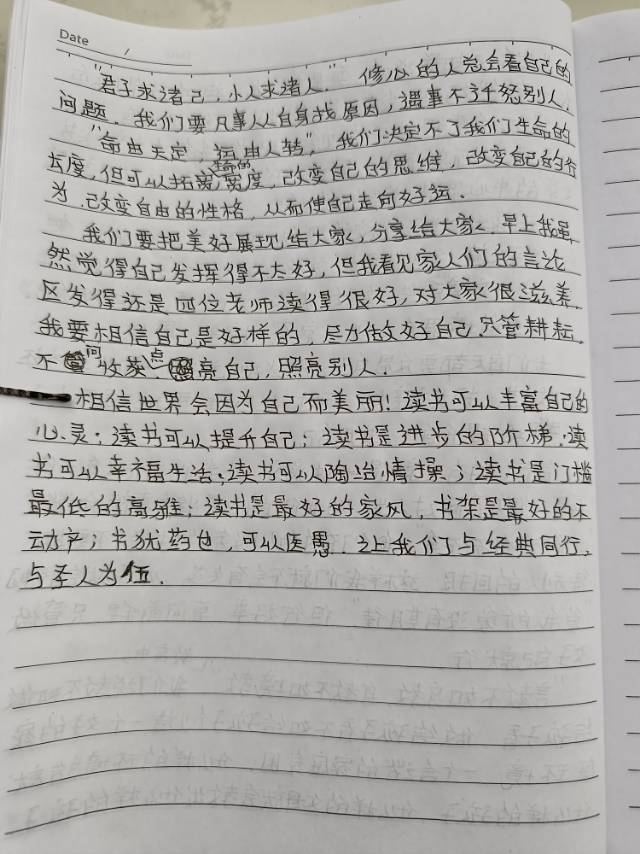 Date /
"君子求诸己,小人求诸人." 修心的人总会看自己的
问题.我们要凡事从自身找原因,遇事不迁怒别人.
"命由天定,运由人转",我们决定不了我们生命的
长度,但可以拓宽生命的宽度,改变自己的思维,改变自己的行
为,改变自由的性格,从而使自己走向好运.
我们要把美好展现给大家,分享给大家,早上我虽
然觉得自己发挥得不太好,但我看见家人们的言论
区发得还是四位老师读得很好,对大家很滋养.
我要相信自己是好样的,尽力做好自己,只管耕耘,
不问收获.点亮自己,照亮别人.
相信世界会因为自己而美丽!读书可以丰富自己的
心灵;读书可以提升自己;读书是进步的阶梯;读
书可以幸福生活;读书可以陶冶情操;读书是门槛
最低的高雅;读书是最好的家风,书架是最好的不
动产;书犹药也,可以医愚.让我们与经典同行,
与圣人为伍.